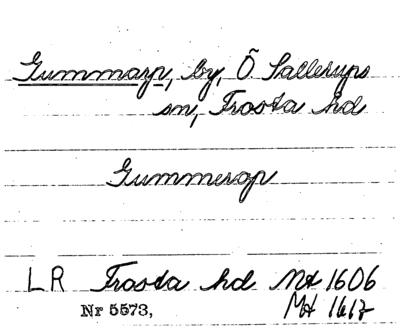 Gummarp, by, Ö. Sallerups
sn, Frosta hd
Gummerop
LR Frosta hd Mt 1606
Nr 5573, Mt 1612